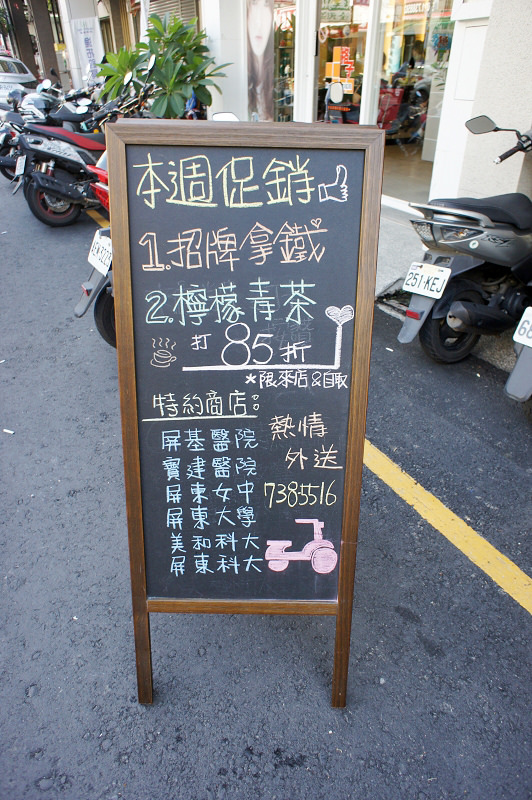 本週促銷
1.招牌拿鐵
2.檸檬青茶
打85折
*限來店&自取
特約商店:
熱情
外送
7385516
屏基醫院
寶建醫院
屏東女中
屏東大學
美和科大
屏東科大
251-KEJ